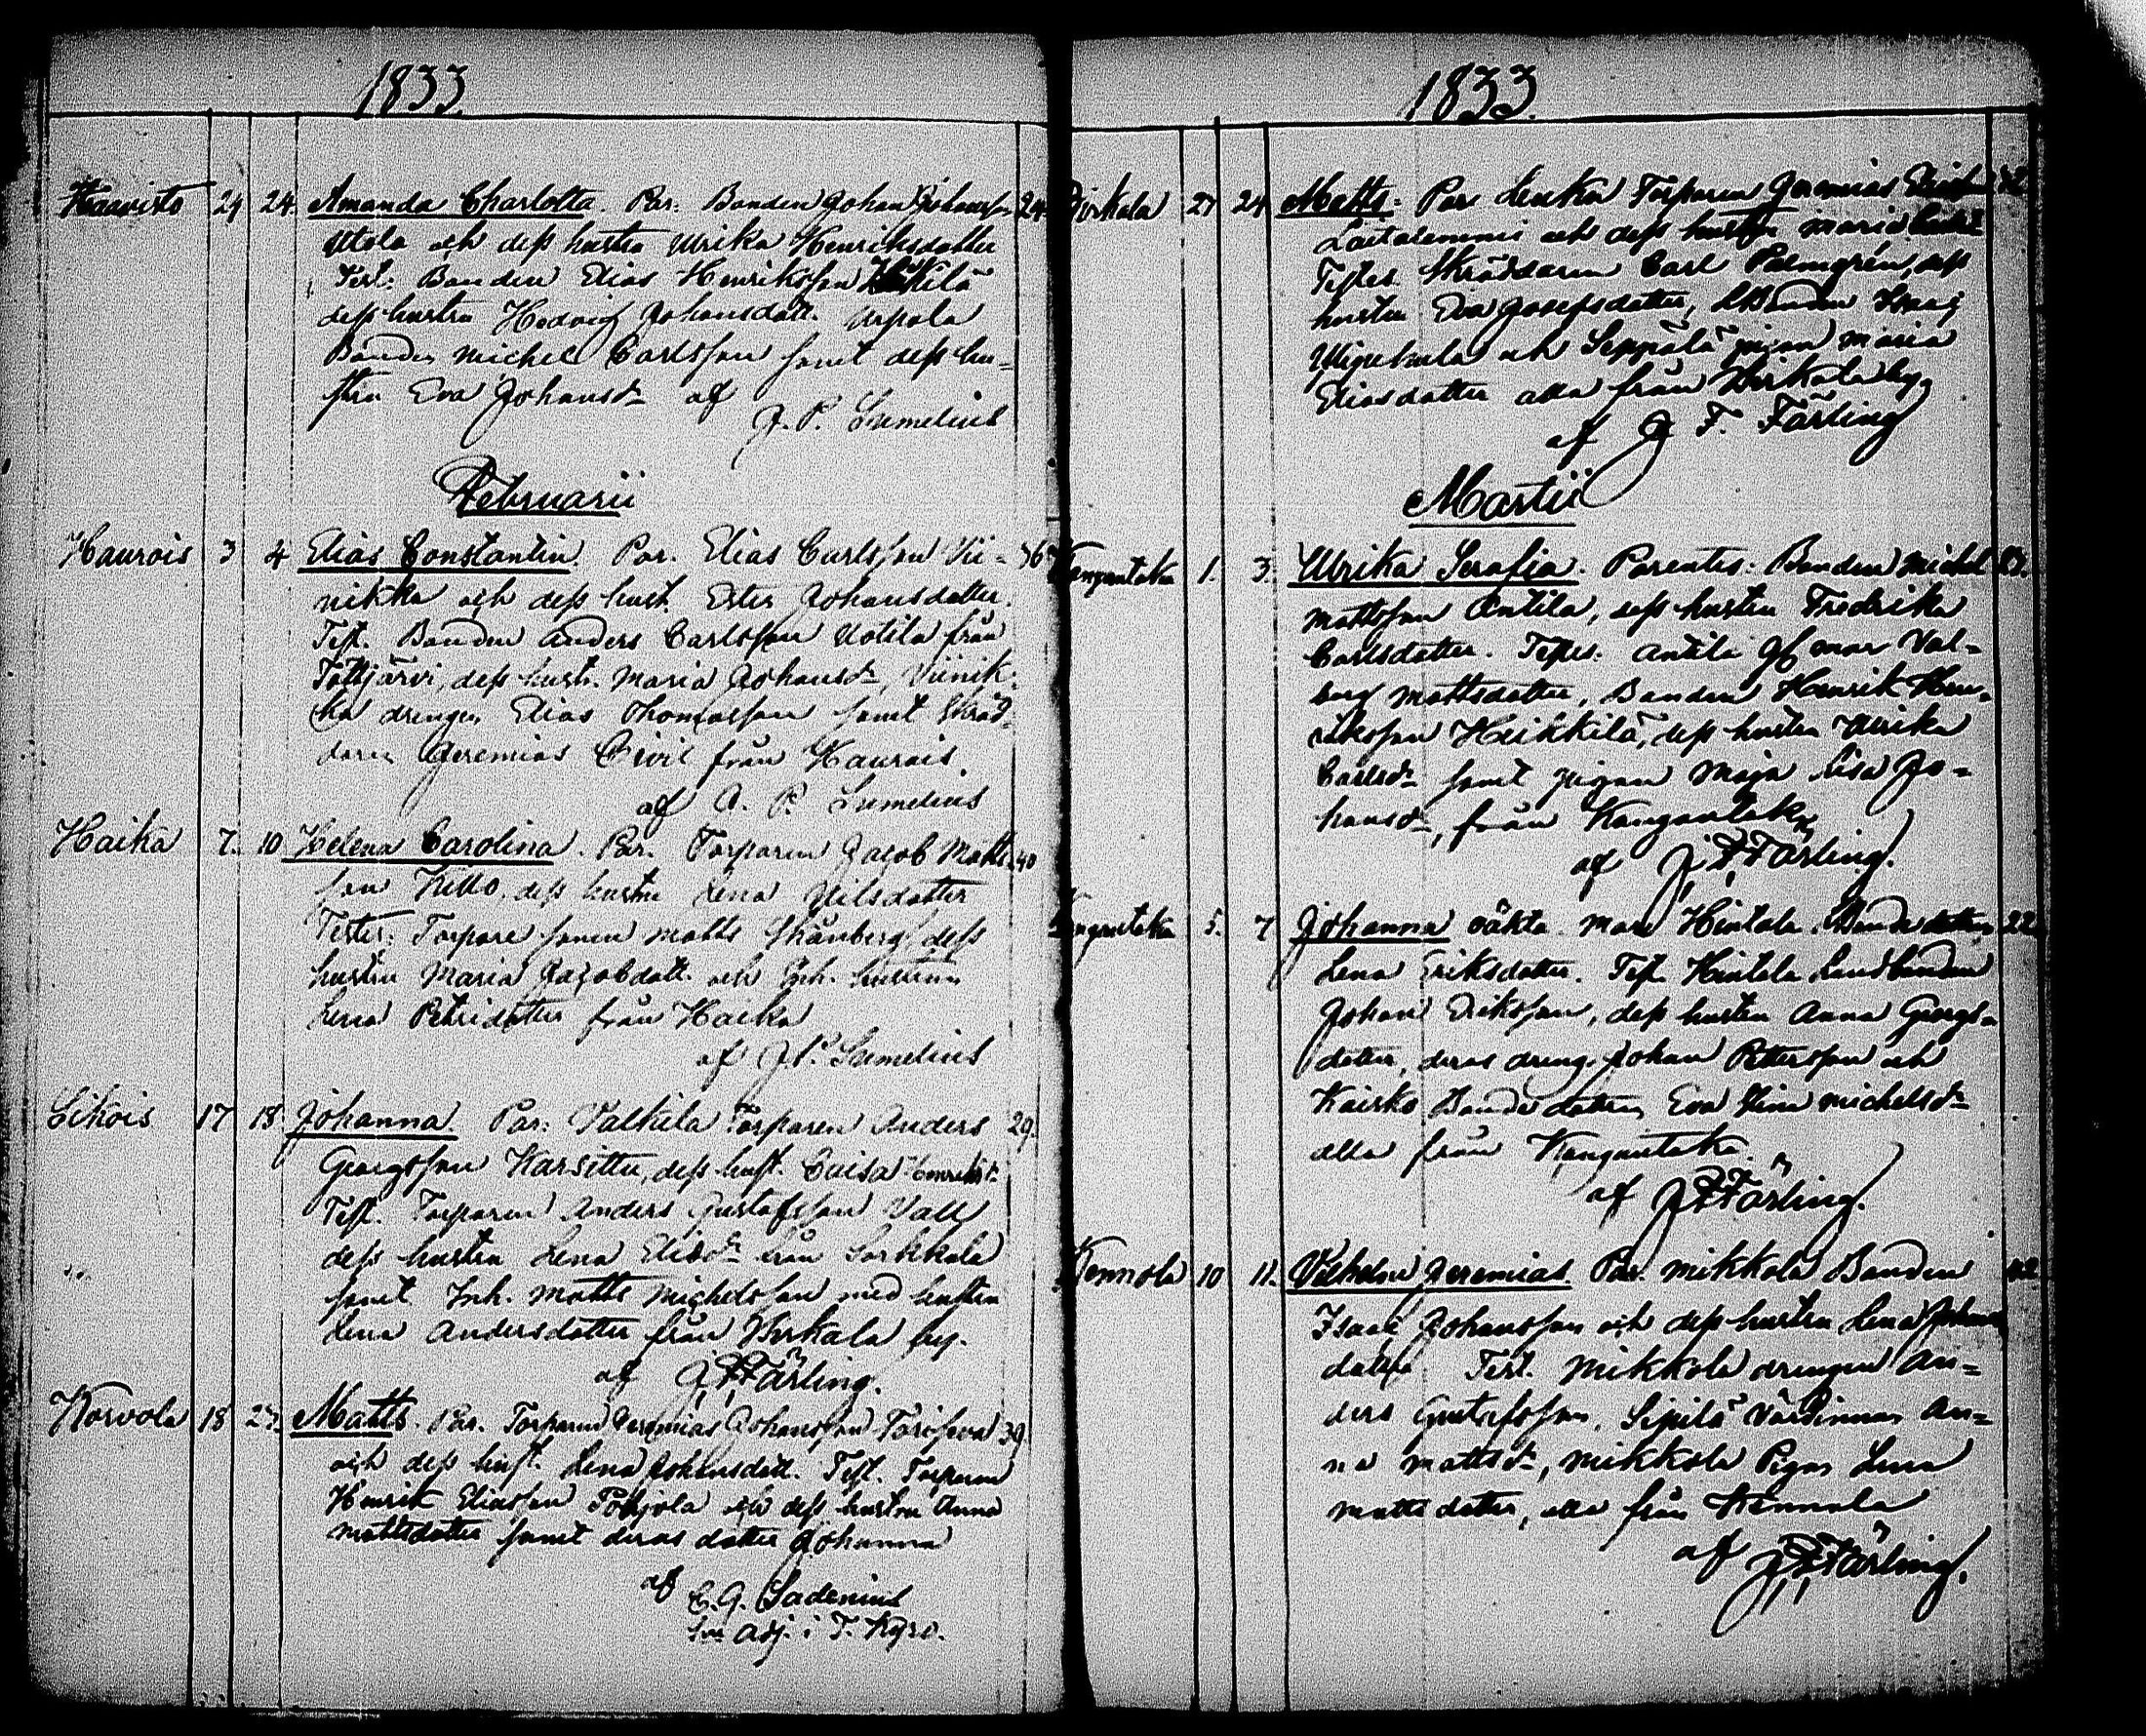 1833.
Haavisto 24 24. Amanda Charlotta. Par: Bonden Johan Johansson 24
Utola och dess hustru Ulrika Henriksdotter
Test. Bonden Elias Henriksson
dess hustru Hedvig Johansdott.
Bonden Michel Carlsson samt dess hu=
stru Eva Johansdr af
J. P. Sumelius
Februarii
Haurois 3 4 Elias Constantin. Par. Elias Carlsson Vii= 36
nikka och dess hust. Ester Johansdotter.
Test. Bonden Anders Carlsson Uotila från
Tottijärvi, dess hustr. Maria Johansdr, Viinik=
ka drengen Elias Thomasson samt Skräd=
daren Jeremias Civil från Haurois.
af J. P. Sumelius
Haika 7. 10 Helena Carolina. Par. Torparen Jacob Matts 40
son Killo, dess hustru Lena Nilsdotter
Testes: Torpare sonen Matts Skånberg dess
hustru Maria Jacobdott. och Inh. hustrun
Lena Petridotter från Haika
af J. P. Sumelius
Likois 17 18 Johanna. Par: Palkila Torparen Anders 29.
Georgsson Karsittu, dess hust. Caisa Henriksdr
Test. Torparen Anders Gustafsson Vall
dess hustru Lena Eliædr från Sorkkala
samt Inh. Matts Michelsson med hustru
Lena Andersdotter från Pirkala by.
af J. F. Färling.
Korvola 18 27. Matts. Par. Torparen Jeremias Johansson 39
och dess hust. Lena Johansdott. Test. Torparen
Henrik Eliasson Pohjola och dess hustru Anna
Mattsdotter samt deras dotter Johanna
af C. G. Sadenius
Adj. i T. Kyro.
1833.
Pirkala 21 24 Matts. Par Torparen Jeremias 42
och dess hustru Maria
Testes Skräddaren Carl Palmgrén, dess
hustru Eva Josefsdotter, Bonden Isaac
och Seppälä pigan Maria
Eliasdotter alla från Pirkala by,
af J. F. Färling
Martii
Kangantaka 1. 3. Ulrika Serafia. Parentes: Bonden Michel
Mattsson Antila, dess hustru Fredrika
Carlsdotter. Testes: Antila Val=
borg Mattsdotter, Bonden Henrik Hen=
riksson Heikkilä, dess hustru Ulrika
Carlsdr samt pigan Maja Lisa Jo=
hansdr, från Kangantaka
af J. F. Färling.
Kangantaka 5. 7 Johanna oäkta. Mar Hintala Bonde dottren 22
Lena Eriksdotter. Test. Hintala Landbonden
Johan Eriksson, dess hustru Anna Georgs=
dotter, deras dreng Johan Pettersson och
Kairko Bonde dottren Eva Stina Michelsdr
alla från Kangantaka.
af J. F. Färling.
Kennola 10 11. Vilhelm Jeremias Par. Mikkola Bonden 42
Isaac Johansson och dess hustru Lena Johans
dotter Test. Mikkola drengen An=
ders Gustafsson, Sipilä Värdinnan An=
na Mattsdr, Mikkola Pigan Lena
Mattsdotter, alla från Kennola
af J. F. Färling.